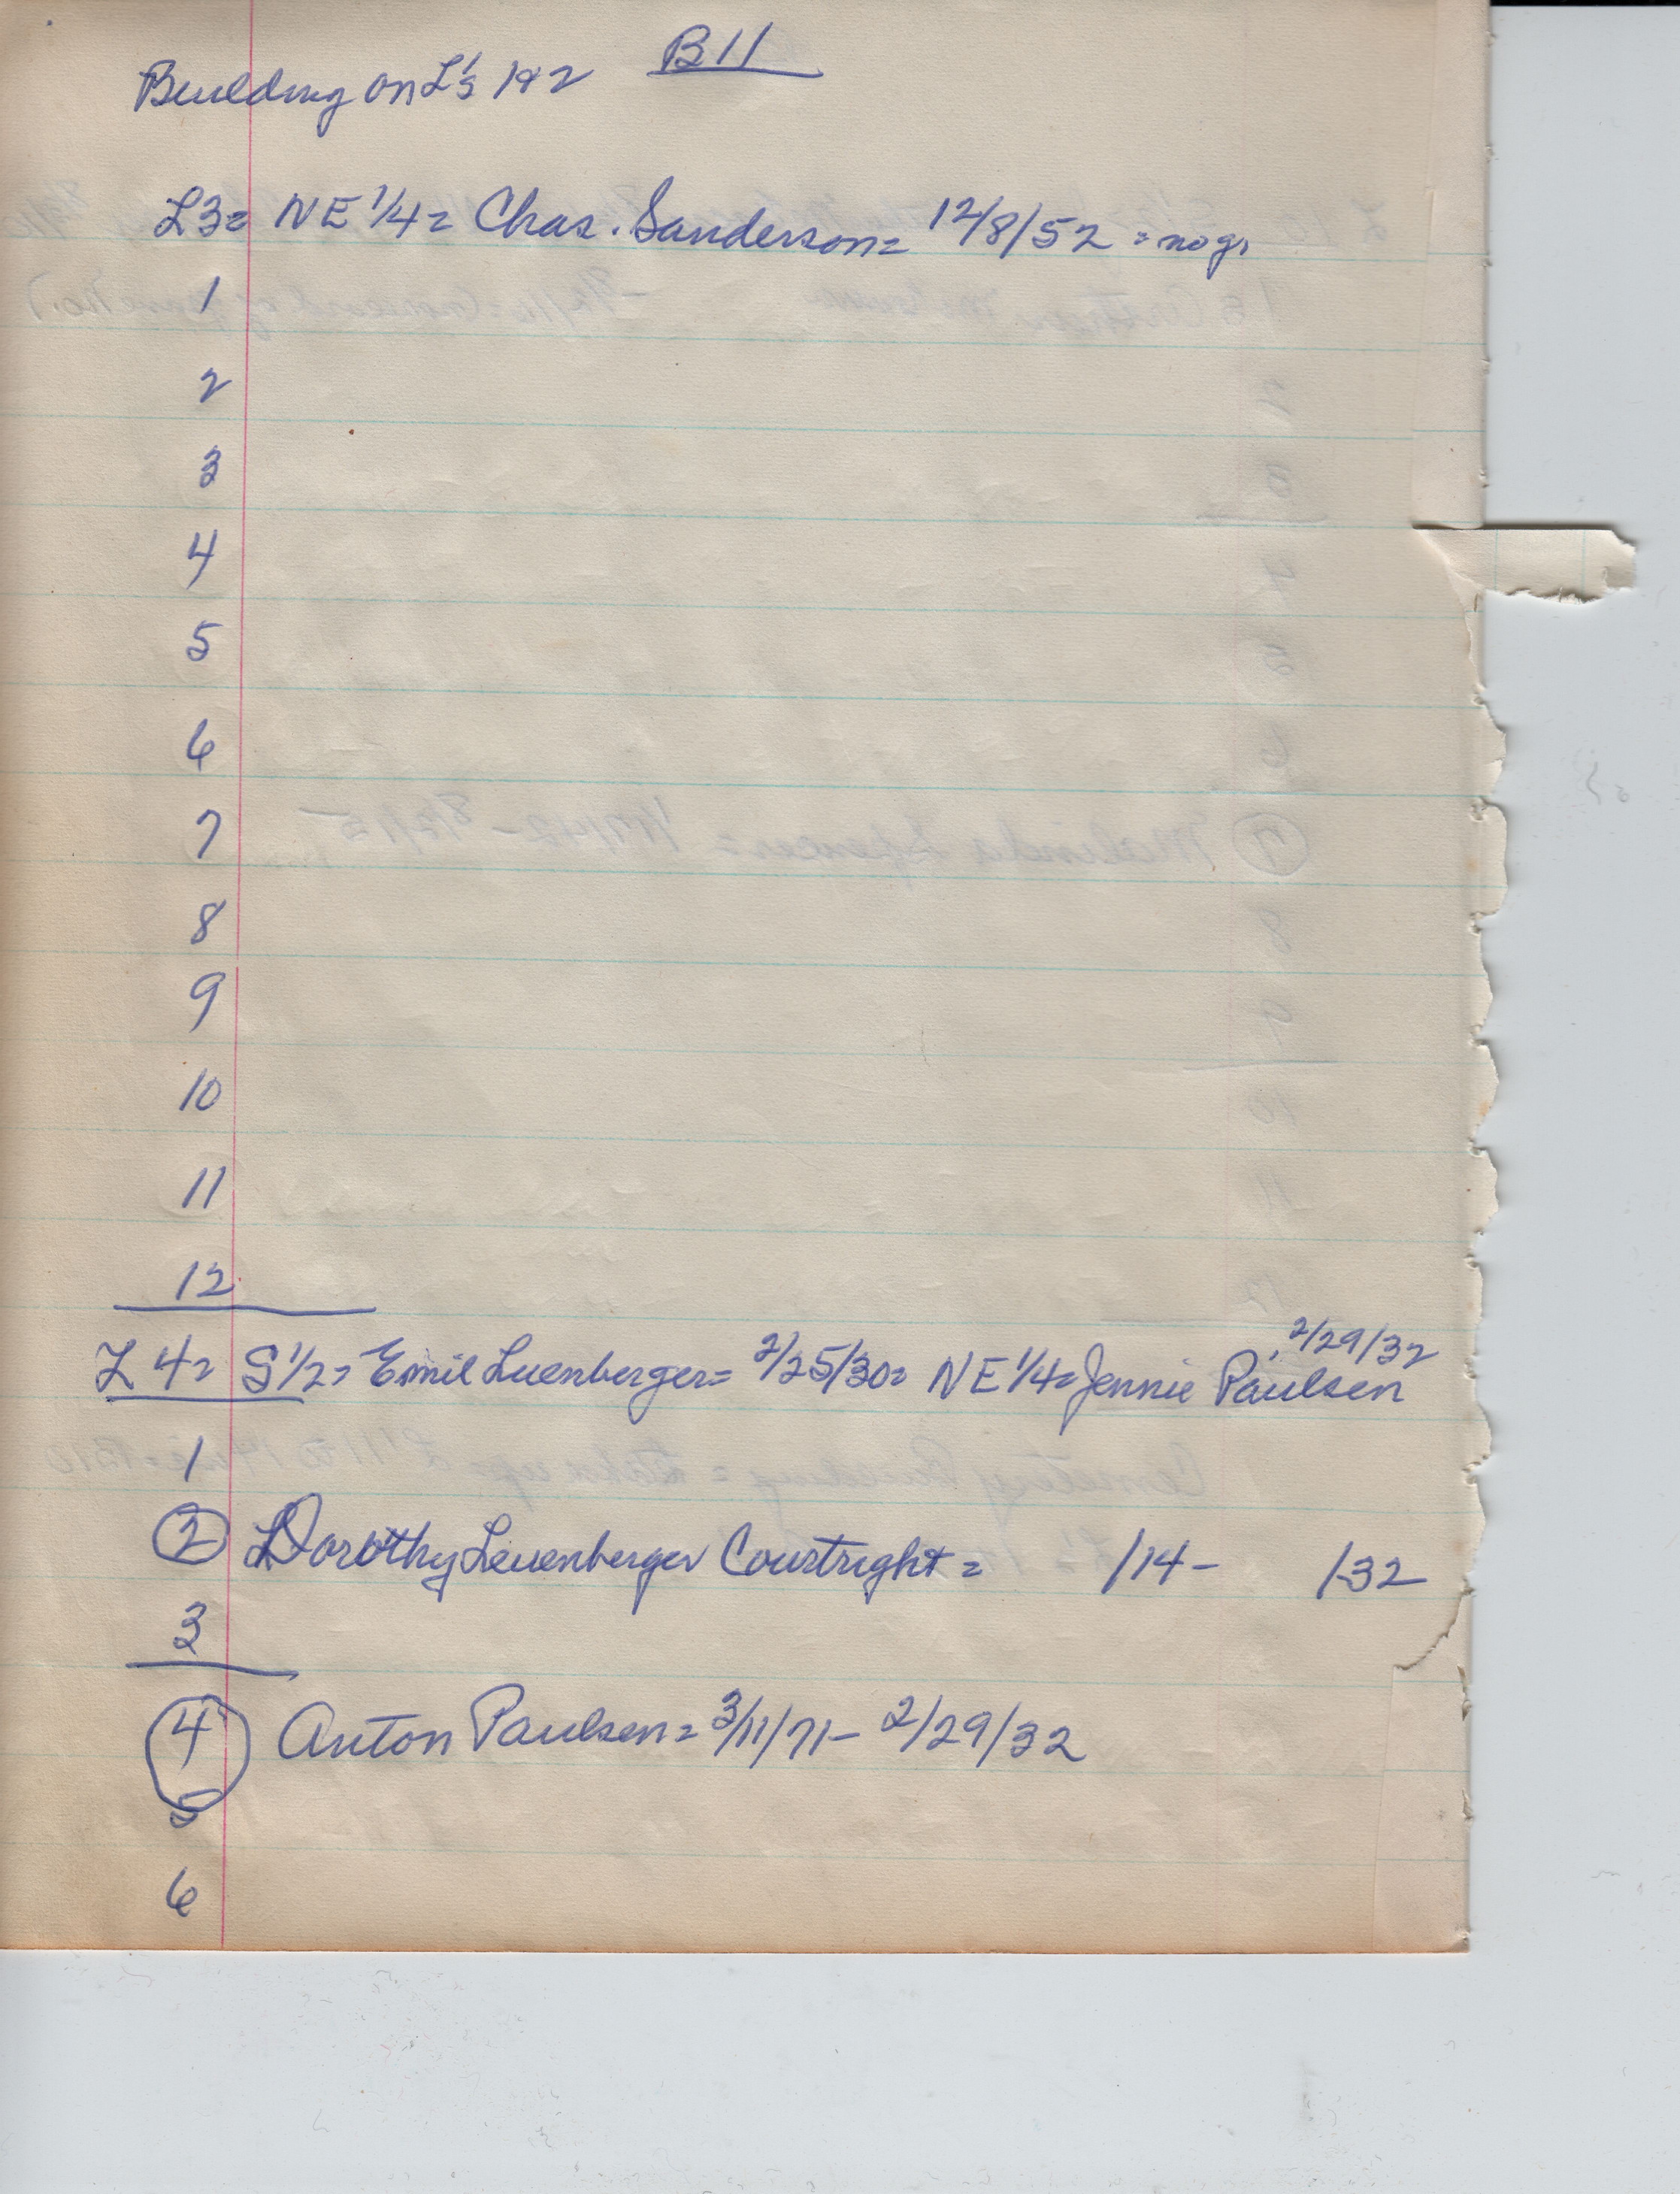 B11
Building on L's 1 & 2
L3 = NE 1/4 = Chas. Sanderson = 12/8/52 = no g.
1
2
3
4
5
6
7
8
9
10
11
12
2/29/32
L 4 = S 1/2 = Emil Luenberger = 2/25/30 = NE 1/4 = Jennie Paulsen
1
2 Dorothy Leuenberger Courtright = /14 - /32
3
4 Anton Paulsen = 3/11/71 - 2/29/32
5
6